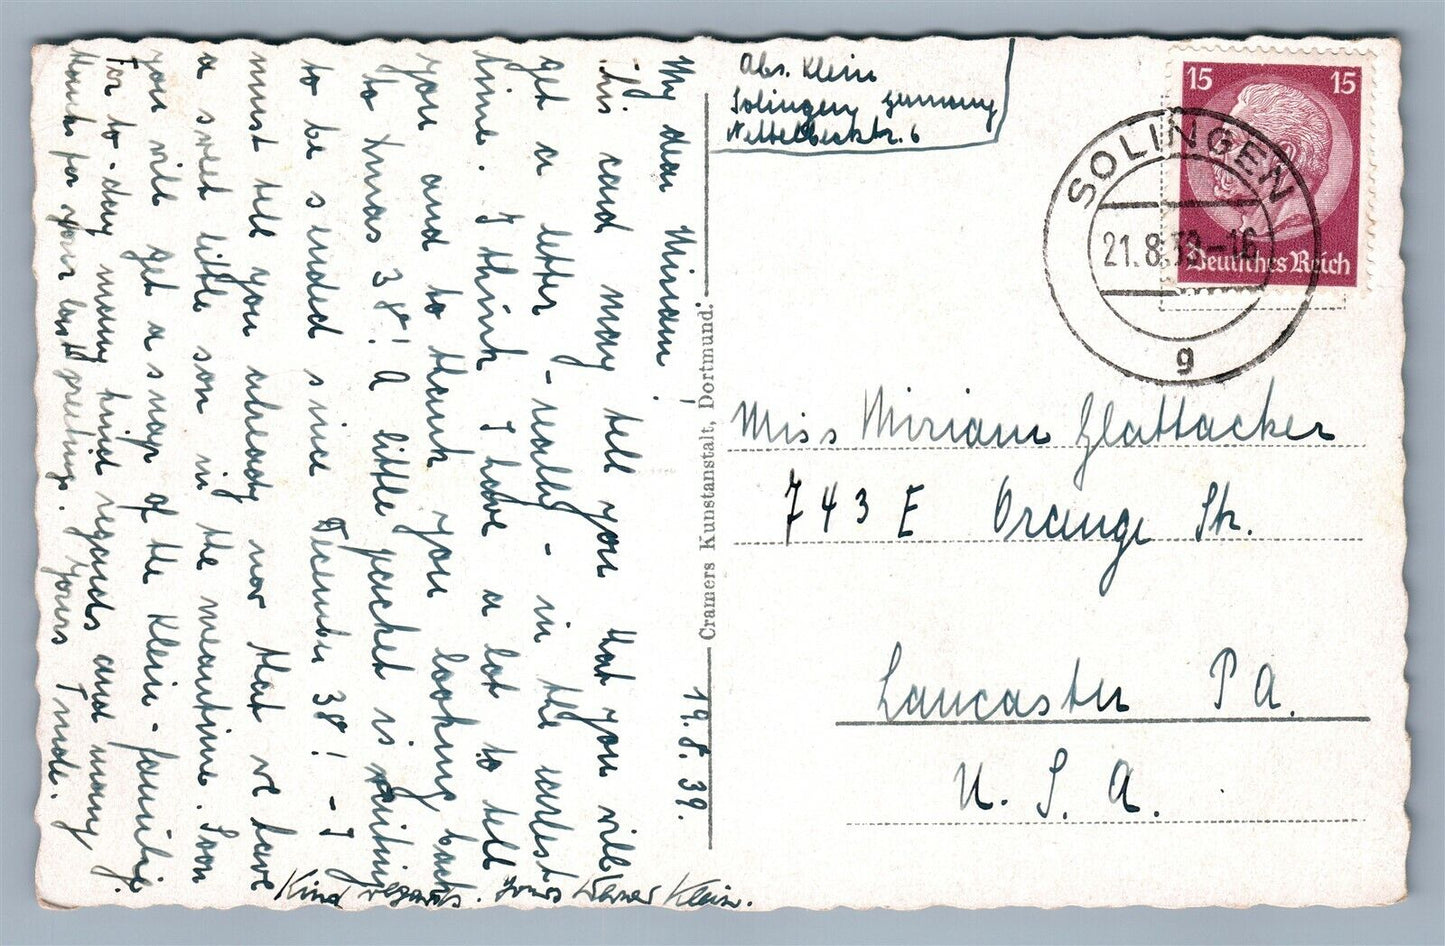 19. 8. 39.
My dear Miriam!
this card may tell you that you will
get a letter - really - in the earliest
time. I think I have a lot to tell
you and to thank you looking back
to Xmas 38! A little packet is waiting
to be sended since December 38! - I
must tell you already now that we have
a sweet little son in the meantime. Soon
you will get a snap of the Klein-family.
For to-day many kind regards and many
thanks for your last greetings. Yours Trude.
Kind regards. Yours Werner Klein.
Cramers Kunstanstalt, Dortmund.
Abs. Klein
Solingen Germany
Nettelbeckstr. 6
15 15
Deutsches Reich
SOLINGEN
21.8.39-16
g
Miss Miriam Glattacker
743 E Orange Str.
Lancaster PA.
U. S. A.